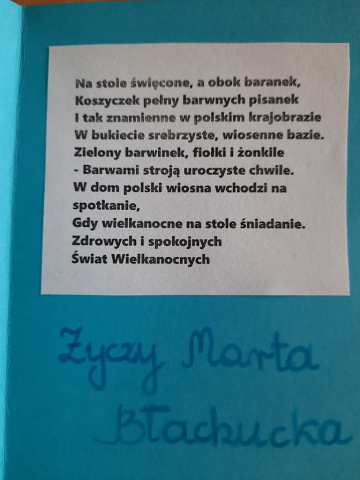 Na stole święcone, a obok baranek,
Koszyczek pełny barwnych pisanek
I tak znamienne w polskim krajobrazie
W bukiecie srebrzyste, wiosenne bazie.
Zielony barwinek, fiołki i żonkile
- Barwami stroją uroczyste chwile.
W dom polski wiosna wchodzi na
spotkanie,
Gdy wielkanocne na stole śniadanie.
Zdrowych i spokojnych
Świat Wielkanocnych
Życzy Marta
Błachucka